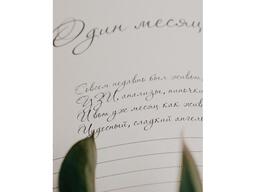 Один месяц
Совсем недавно был живот,
УЗИ, анализы,
И вот уже месяц как
Чудесный, сладкий